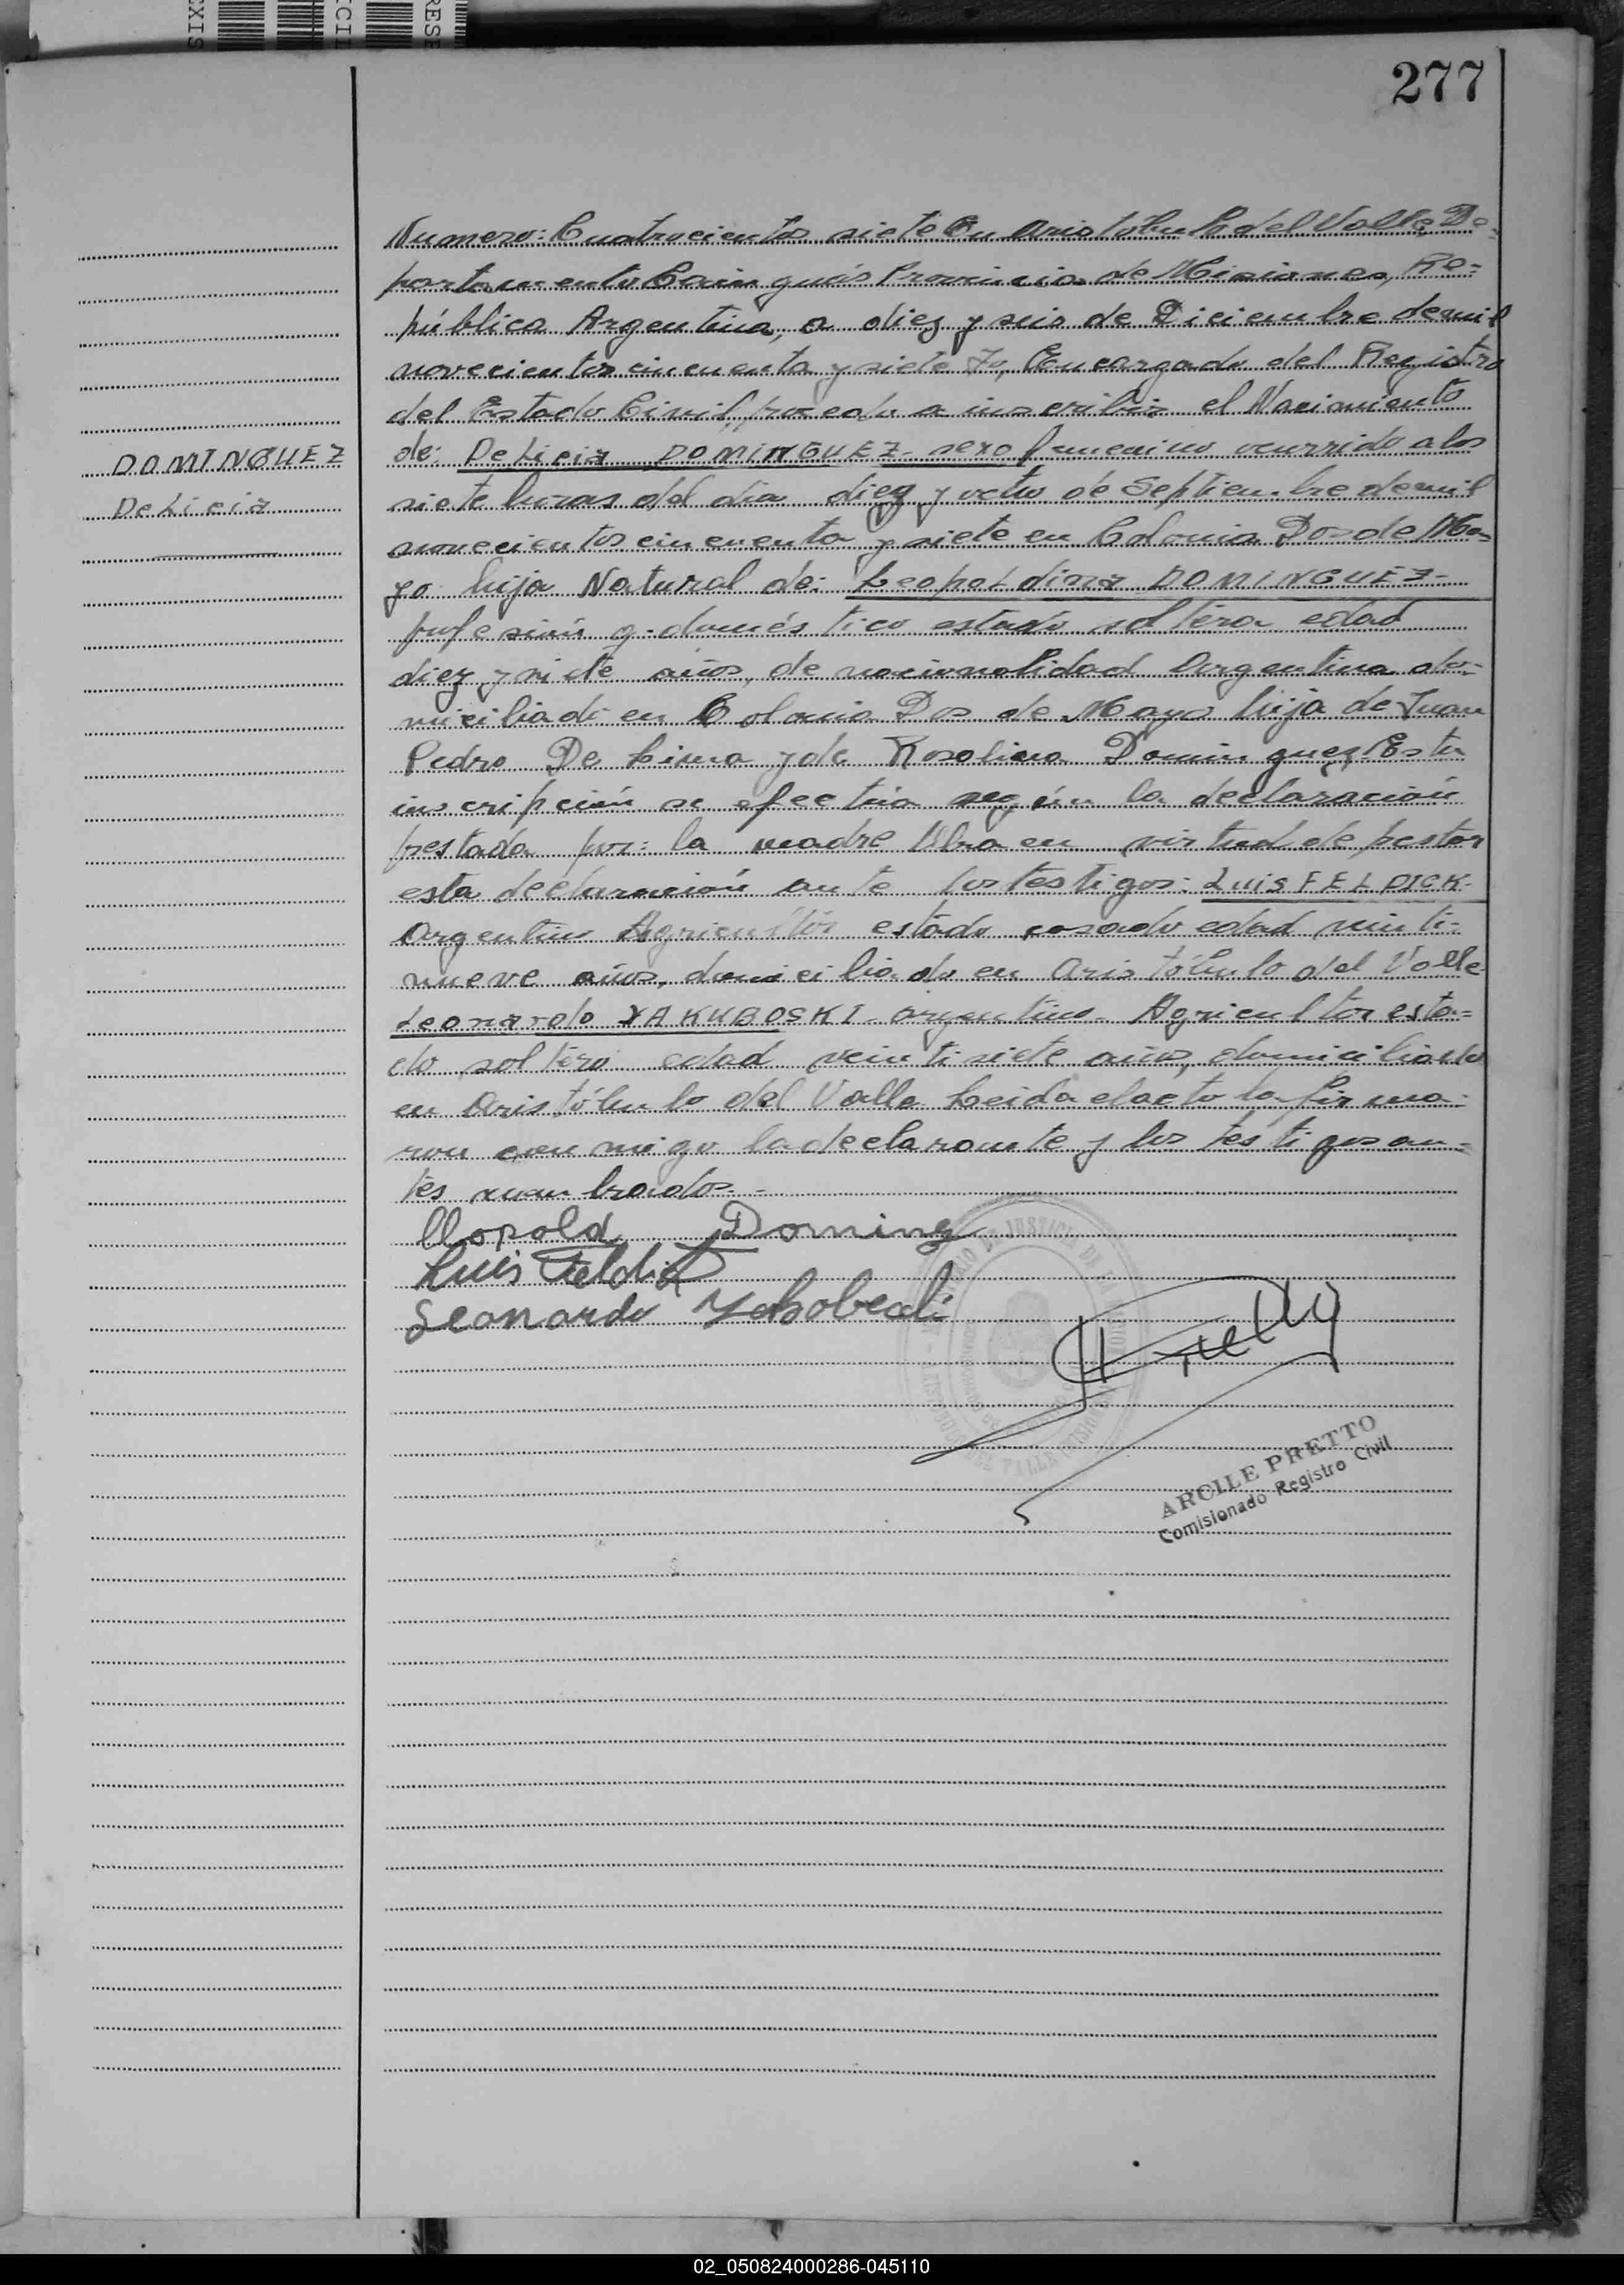 277
Numero: Cuatrocientos siete En Aristóbulo del Valle De-
partamento Cainguás Provincia de Misiones, Re=
pública Argentina, a diez y seis de Diciembre de mil
novecientos cincuenta y siete Yo, Encargado del Registro
del Estado Civil, procedo a inscribir el Nacimiento
DOMINGUEZ
de: DeLicia DOMINGUEZ- sexo femenino ocurrido a las
DeLicia
siete horas del dia diez y ocho de Septiembre de mil
novecientos cincuenta y siete en Colonia Dos de Ma=
yo hija Natural de: LeopoLdina DOMINGUEZ-
profesión q. doméstico estado soltera edad
diez y siete años, de nacionalidad Argentina do=
miciliada en Colonia Dos de Mayo hija de Juan
Pedro De Lima y de Rosalina Dominguez. Esta
inscripción se efectúa según la declaración
prestada por: la madre Obra en virtud de pestar
esta declaración ante los testigos: Luis FELDICK-
Argentino Agricultor estado casado edad vinti=
nueve años, domiciliado en Aristóbulo del Valle
Leonardo YAKUBOSKI- argentino- Agricultor esta=
do soltero edad veintisiete años, domiciliado
en Aristóbulo del Valle Leida el acto la firma=
ron con migo la declarante y los testigos an=
tes nombrados.-
Llopold Doming
Luis Feldik
Leonardo
MINISTERIO DE JUSTICIA DE LA NACION
ARISTOBULO DEL VALLE (MISIONES)
ARCILE PRETTO
Comisionado Registro Civil
02_050824000286-045110